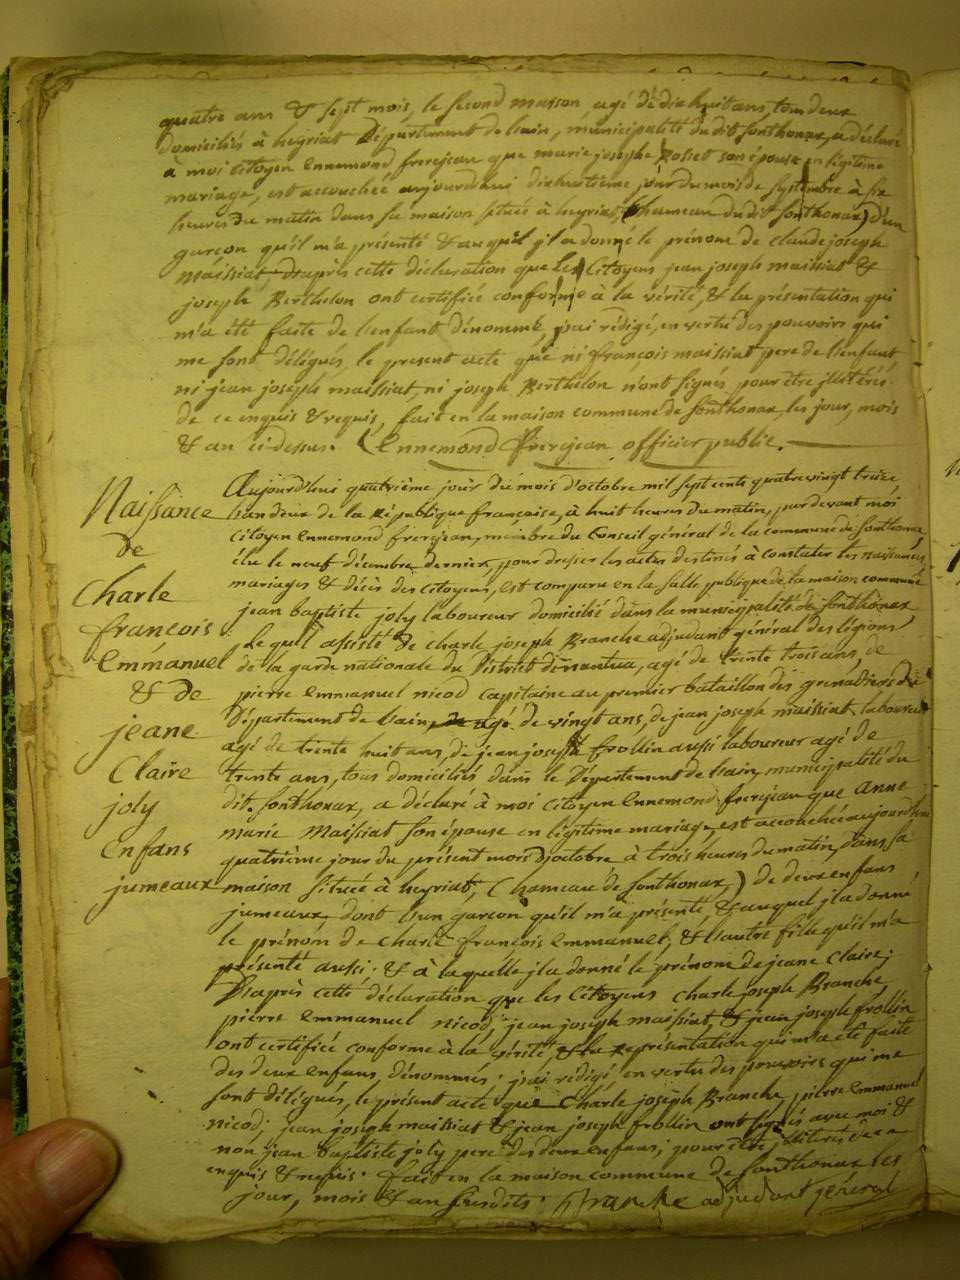 quatre ans & sept mois, le second masson agé de dixhuit ans, tous deux
domiciliés à heyriat Département de lain, municipalité du dit sonthonax, a déclaré
à moi citoyen ennemond frerejean que marie josephe Rosset son épouse en légitime
mariage, est accouchée aujourdhui dixhuitième jour du mois de septembre à six
heures du matin dans sa maison située à heyriat, (hameau du dit sonthonax) d'un
garçon qu'il m'a présenté & auquel il a donné le prénom de claude joseph
maissiat. D'après cette déclaration que les Citoyens jean joseph maissiat &
joseph Berthelon ont certifiée conforme à la vérité, & la présentation qui
m'a été faite de lenfant dénommé, j'ai rédigé, en vertu des pouvoirs qui
me sont délégués, le present acte que ni françois maissiat pere de lenfant,
ni jean joseph maissiat, ni joseph Berthelon n'ont signés, pour être illitérés
de ce enquis & requis, fait en la maison commune de sonthonax, les jour, mois
& an ci-dessus. Ennemond Frerejean officier public.
Naissance
de
Charle
françois
emmanuel
& de
jeane
Claire
joly
enfans
jumeaux
Aujourd'hui quatrième jour du mois d'octobre mil sept cents quatre vingt treize,
lan deux de la République françoise, à huit heures du matin, par devant moi
Citoyen ennemond frerejean, membre du Conseil général de la commune de sonthonax,
élu le neuf décembre dernier, pour dresser les actes destinés à constater les naissances,
mariages & décès des citoyens, est comparu en la salle publique de la maison commune
jean baptiste joly laboureur domicilié dans la municipalité de sonthonax
Lequel assisté de charle joseph Branche adjudant général des légions
de la garde nationale du District de nantua, agé de trente trois ans, de
pierre emmanuel nicod capitaine au premier bataillon des grenadiers du
Département de lain, agé de vingt ans, de jean joseph maissiat laboureur
agé de trente huit ans, de jean joseph frollin aussi laboureur agé de
trente ans, tous domiciliés dans le Département de lain, municipalité du
dit sonthonax, a déclaré à moi Citoyen ennemond frerejean que anne
marie maissiat son épouse en légitime mariage, est accouchée aujourdhui
quatrième jour du présent mois d'octobre à trois heures du matin, dans sa
maison située à heyriat, (hameau de sonthonax,) de deux enfans
jumeaux, dont lun garçon qu'il m'a présenté, & auquel il a donné
le prénom de charle françois emmanuel, & l'autre fille qu'il m'a
présenté aussi, & à laquelle il a donné le prénom de jeane claire;
D'après cette déclaration que les Citoyens charle joseph Branche,
pierre emmanuel nicod, jean joseph maissiat, & jean joseph frollin
ont certifiée conforme à la vérité, & la représentation qui m'a été faite
des deux enfans dénommés; j'ai rédigé en vertu des pouvoirs qui me
sont délégués, le présent acte que Charle joseph Branche, pierre emmanuel
nicod; jean joseph maissiat & jean joseph frollin ont signés avec moi &
non jean baptiste joly pere des deux enfans; pour être illiteré de ce
enquis & requis. fait en la maison commune de sonthonax les
jour, mois & an susdits. Branche adjudant général